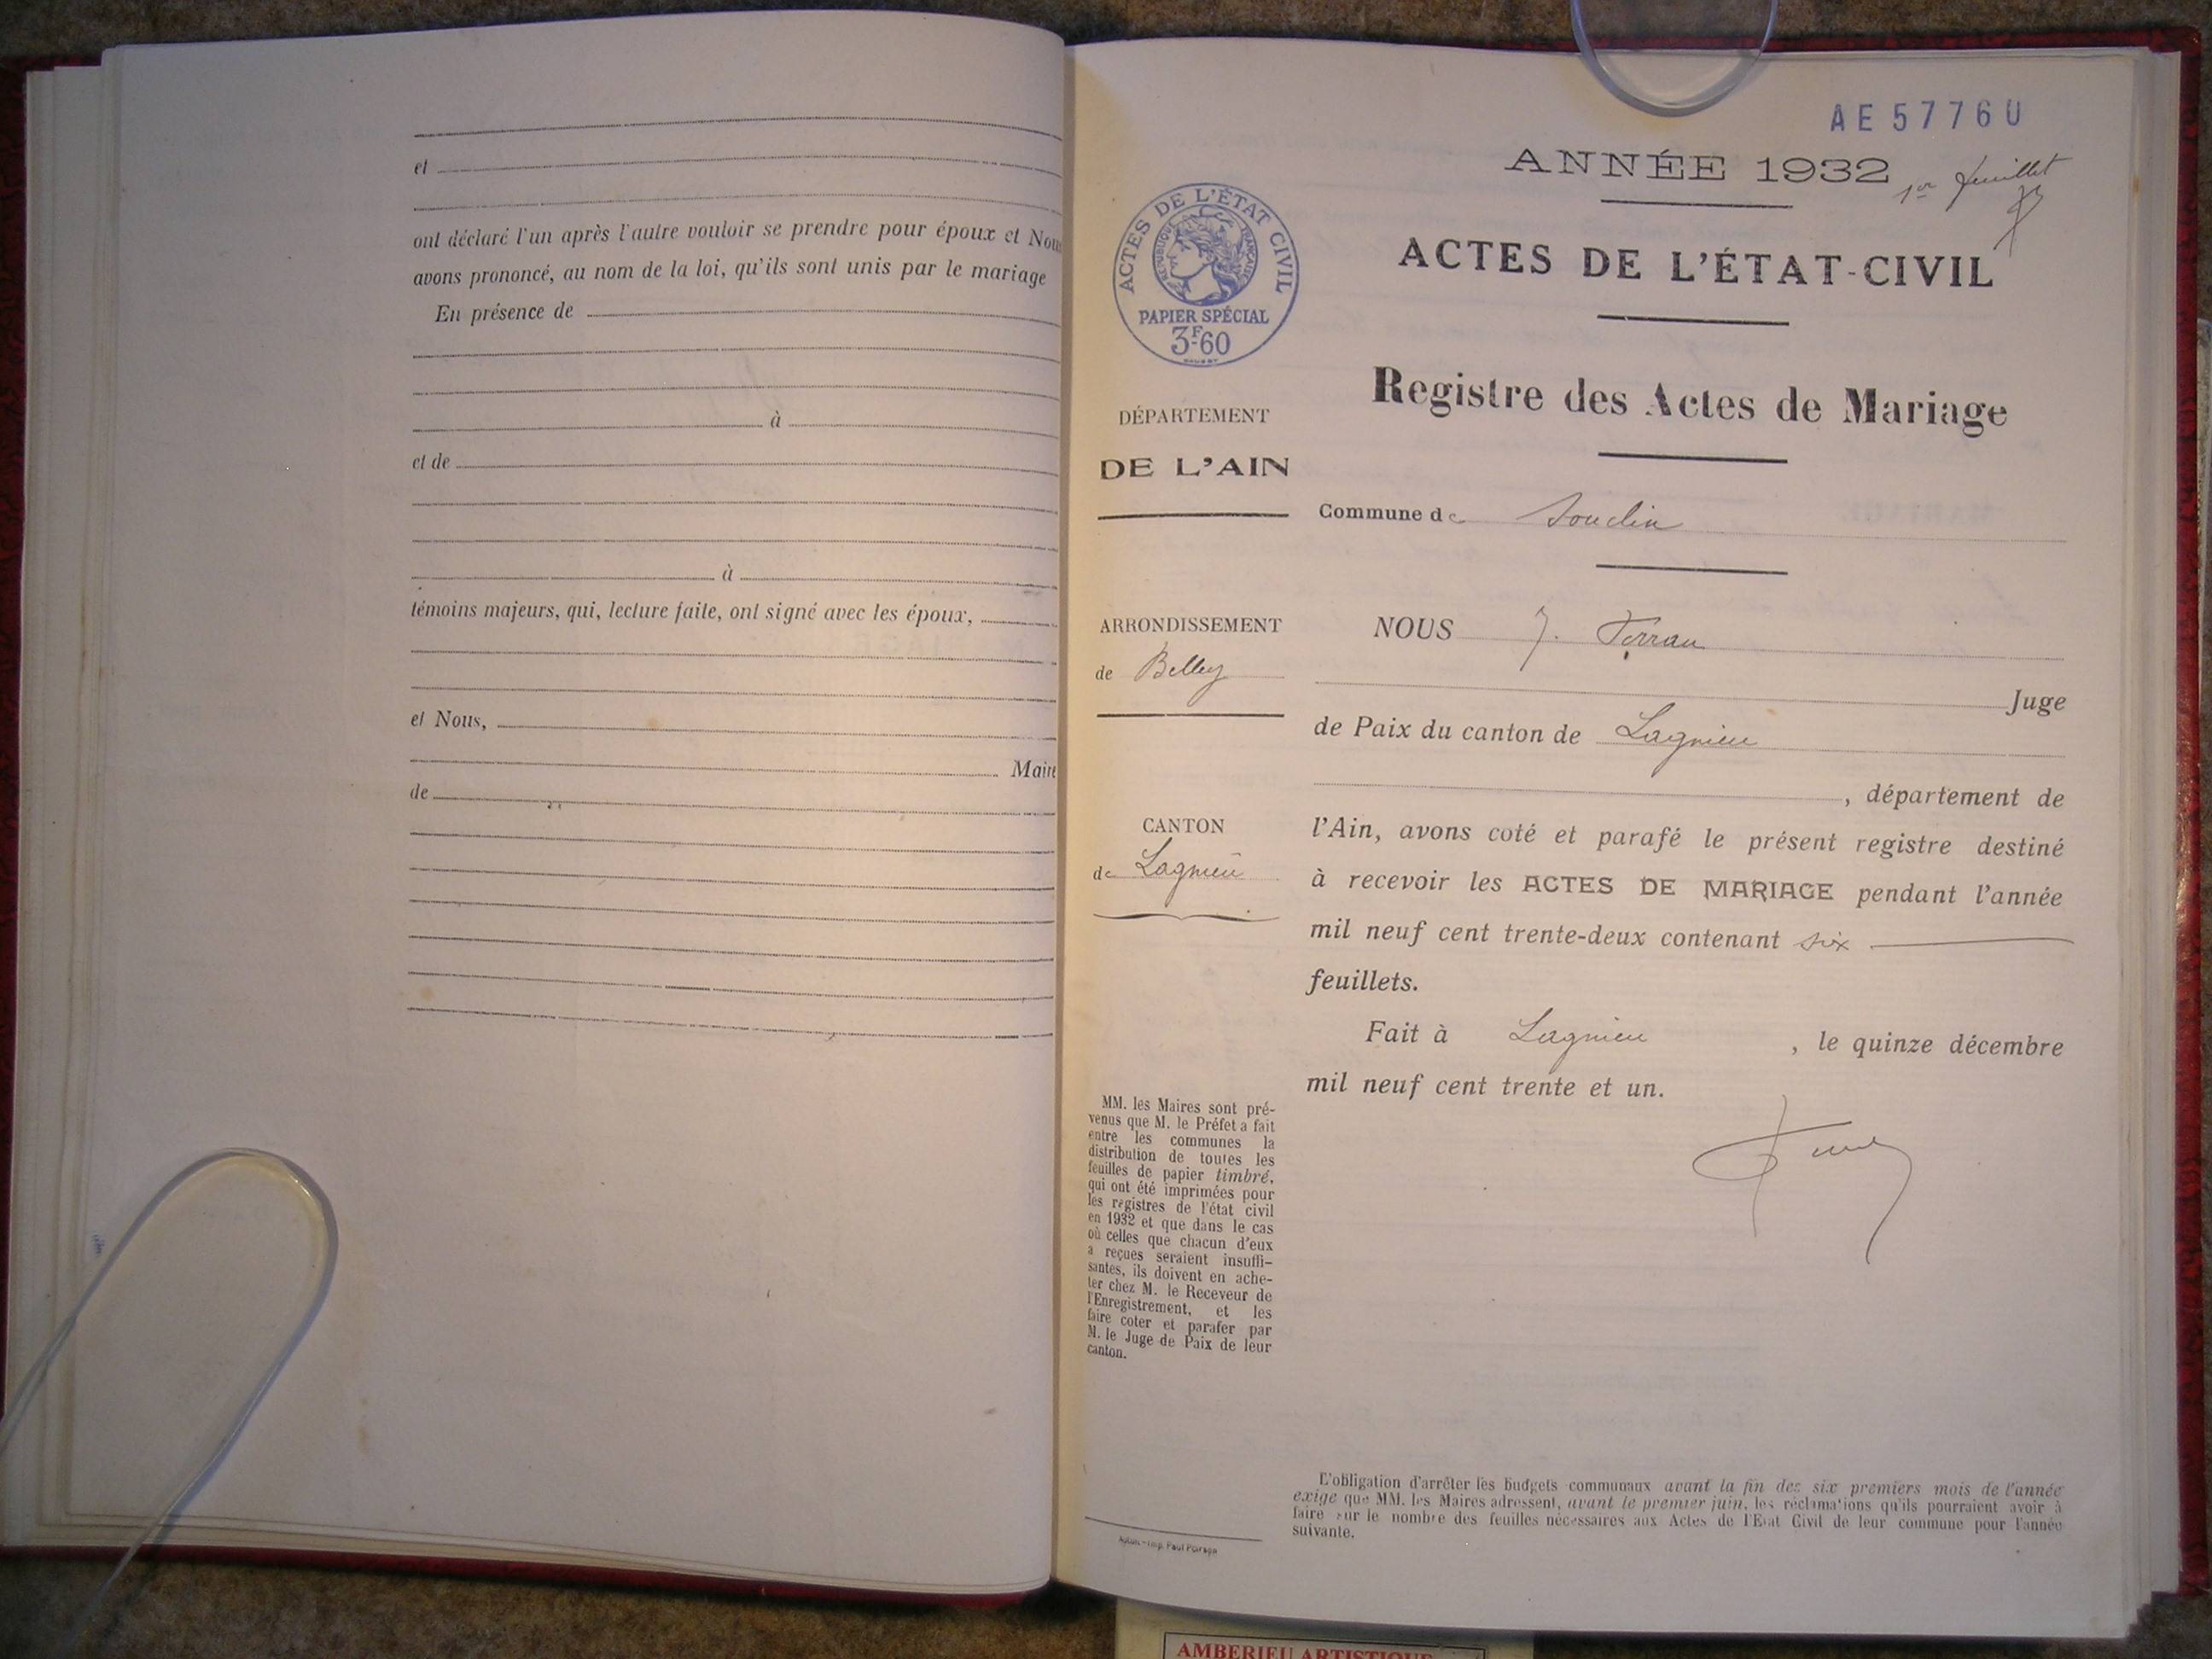 et
ont déclaré l'un après l'autre vouloir se prendre pour époux et Nous
avons prononcé, au nom de la loi, qu'ils sont unis par le mariage
En présence de
à
et de
à
témoins majeurs, qui, lecture faite, ont signé avec les époux,
et Nous,
Maire
de
AE 5776U
ANNÉE 1932
1er feuillet
ACTES DE L'ÉTAT CIVIL
RÉPUBLIQUE FRANÇAISE
PAPIER SPÉCIAL
3F60
ACTES DE L'ÉTAT-CIVIL
Registre des Actes de Mariage
DÉPARTEMENT
DE L'AIN
Commune de Souclin
ARRONDISSEMENT
de Belley
CANTON
de Lagnieu
NOUS J.
Juge
de Paix du canton de Lagnieu
, département de
l'Ain, avons coté et parafé le présent registre destiné
à recevoir les ACTES DE MARIAGE pendant l'année
mil neuf cent trente-deux contenant six
feuillets.
Fait à Lagnieu , le quinze décembre
mil neuf cent trente et un.
MM. les Maires sont pré-
venus que M. le Préfet a fait
entre les communes la
distribution de toutes les
feuilles de papier timbré,
qui ont été imprimées pour
les registres de l'état civil
en 1932 et que dans le cas
où celles que chacun d'eux
a reçues seraient insuffi-
santes, ils doivent en ache-
ter chez M. le Receveur de
l'Enregistrement, et les
faire coter et parafer par
M. le Juge de Paix de leur
canton.
L'obligation d'arrêter les budgets communaux avant la fin des six premiers mois de l'année
exige que MM. les Maires adressent, avant le premier juin, les réclamations qu'ils pourraient avoir à
faire sur le nombre des feuilles nécessaires aux Actes de l'Etat Civil de leur commune pour l'année
suivante.
Imp. Paul
AMBERIEU ARTISTIQUE